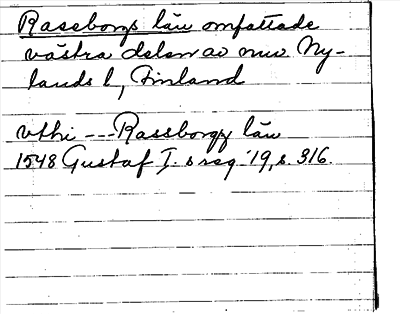 Raseborgs län omfattade
västra delen av nuv. Ny-
lands l, Finland
vthi --- Rassborgx län
1548 Gustaf I. s reg. 19, s. 316.